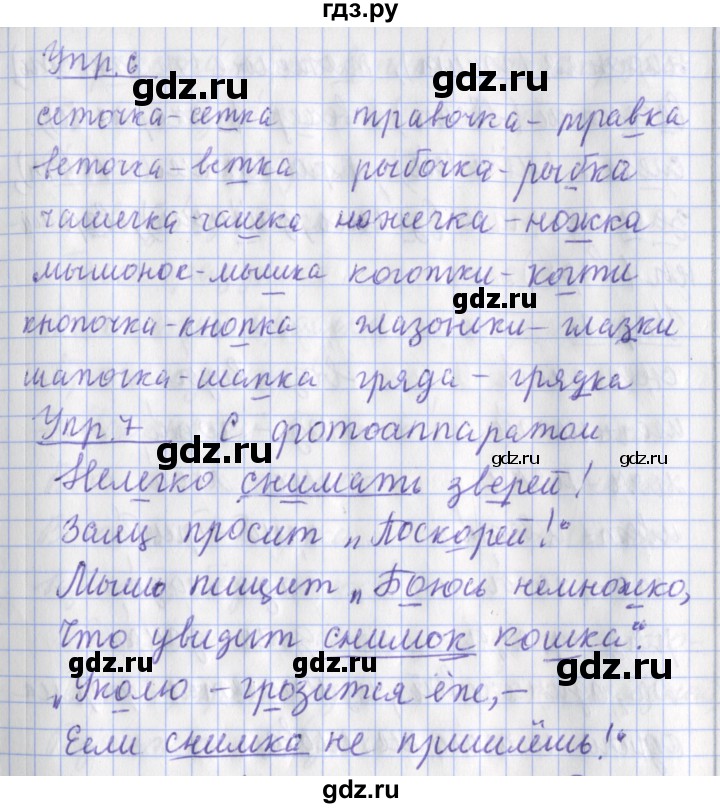 гдз.ру
Упр. 6
сеточка-сетка травочка-травка
веточка-ветка рыбочка-рыбка
чашечка-чашка ножечка-ножка
мышонок-мышка коготки-когти
кнопочка-кнопка глазоньки-глазки
шапочка-шапка гряда-грядка
Упр. 7 С фотоаппаратом
Нелегко снимать зверей!
Заяц просит „Поскорей!“
Мышь пищит „Боюсь немножко,
Что увидит снимок кошка“.
„Уколю – грозится ёж, –
Если снимка не пришлёшь!“
gdz.ru
gdz.ru
gdz.ru
gdz.ru
gdz.ru
gdz.ru
gdz.ru
gdz.ru
gdz.ru
gdz.ru